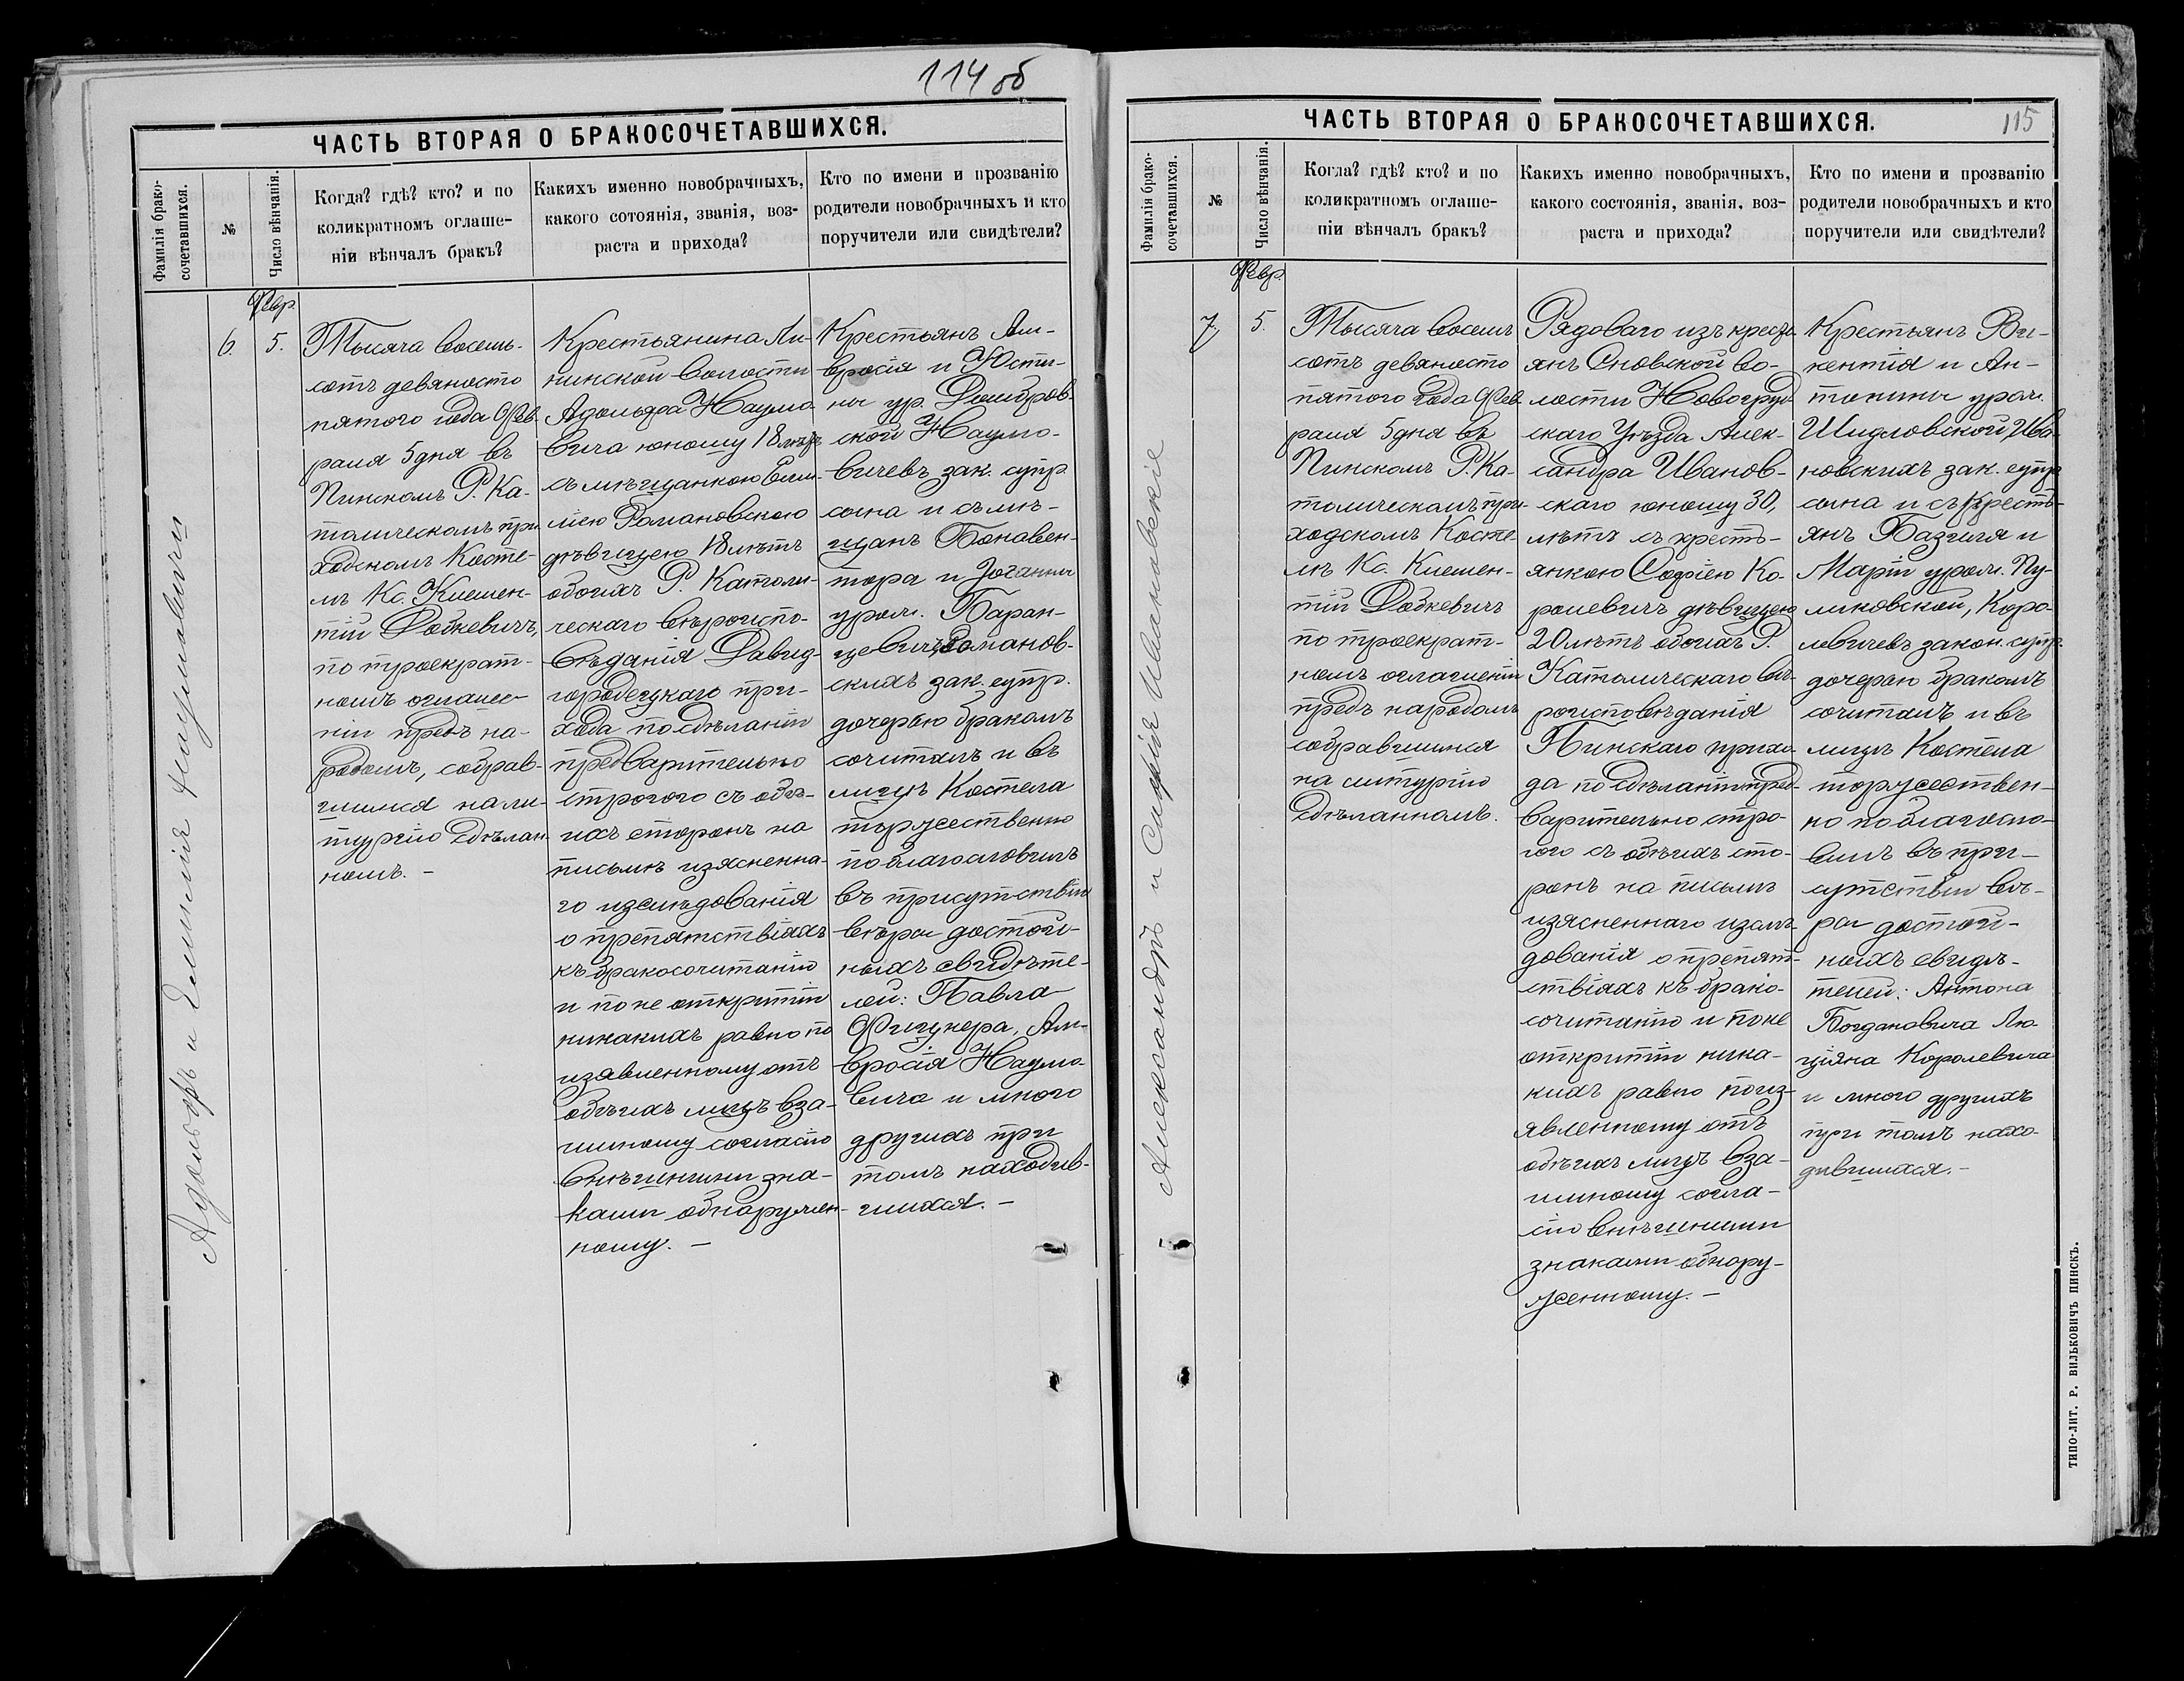 114 об
ЧАСТЬ ВТОРАЯ О БРАКОСОЧЕТАВШИХСЯ.
Фамилія брако-
сочетавшихся.
№
Число вѣнчанія.
Когда? гдѣ? кто? и по
коликратномъ оглаше-
ніи вѣнчалъ бракъ?
Какихъ именно новобрачныхъ,
какого сотоянія, званія, воз-
раста и прихода?
Кто по имени и прозванію
родители новобрачныхъ и кто
поручители или свидѣтели?
Адольфъ и Емилія Наумовичи
6.
Февр.
5.
Тысяча восемь-
сотъ девяносто
пятого года Фев-
раля 5 дня въ
Пинскомъ Р. Ка-
толическомъ при-
ходскомъ Косте-
лѣ Кс. Климен-
тій Добкевичъ,
по троекрат-
номъ оглаше-
ніи предъ на-
родомъ, собрав-
шимся на ли-
тургію сдѣлан-
номъ. —
Крестьянина Ли-
нинской волости
Адольфа Наумо-
вича юношу 18 лѣтъ
съ мѣщанкою Еми-
ліею Романовскою
дѣвицею 18 лѣтъ
обоихъ Р. Католи-
ческаго вѣроиспо-
вѣданія Давид-
городецкаго при-
хода по сдѣланіи
предварительно
строгого съ обѣ-
ихъ сторонъ на
письмѣ изясненна-
го изслѣдованія
о препятствіяхъ
къ бракосочитанію
и по не открытіи
никакихъ равно по
изявленному отъ
обѣихъ лицъ вза-
имному согласію
внѣшними зна-
ками обнаружен-
ному. —
Крестьянъ Ам-
вросія и Юсти-
ны ур. Домбров-
ской Наумо-
вичевъ зак. супр.
сына и съ мѣ-
щанъ Бонавен-
тора и Іоганны
урож. Баран-
цевичъ Романов-
скихъ зак. супр.
дочерью бракомъ
сочиталъ и въ
лицѣ Костела
торжественно
поблагословилъ
въ присутствіи
вѣры достой-
ныхъ свидѣте-
лей: Павла
Фигунера, Ам-
вросія Наумо-
вича и много
другихъ при
томъ находив-
шихся. —
ЧАСТЬ ВТОРАЯ О БРАКОСОЧЕТАВШИХСЯ.
115
Фамилія брако-
сочетавшихся.
№
Число вѣнчанія.
Когла? гдѣ? кто? и по
коликратномъ оглаше-
ніи вѣнчалъ бракъ?
Какихъ именно новобрачныхъ,
какого состоянія, званія, воз-
раста и прихода?
Кто по имени и прозванію
родители новобрачныхъ и кто
поручители или свидѣтели?
Александръ и Софія Ивановскіе
7.
Февр.
5.
Тысяча восемь
сотъ девяносто
пятого года Фев-
раля 5 дня въ
Пинскомъ Р. Ка-
толическомъ при-
ходскомъ Косте
лѣ Кс. Климен-
тій Добкевичъ
по троекрат-
номъ оглашеніи
предъ народомъ
собравшимся
на литургію
сдѣланномъ.
Рядоваго изъ кресть-
янъ Сновской во-
лости Новогруд-
скаго Уѣзда Алек-
сандра Иванов-
скаго юношу 30,
лѣтъ съ кресть-
янкою Софіею Ко-
ролевичъ дѣвицею
20 лѣтъ обоихъ Р.
Католическаго вѣ-
роисповѣданія
Пинскаго прихо-
да по сдѣланіи пред-
варительно стро-
гого съ обѣихъ сто-
ронъ на письмѣ
изясненнаго изслѣ-
дованія о препят-
ствіяхъ къ брако-
сочитанію и по не
открытіи ника-
кихъ равно по из-
явленному отъ
обѣихъ лицъ вза-
имному согла-
сію внѣшними
знаками обнару-
женному. —
Крестьянъ Ви-
кентія и Ан-
тонины урож.
Шидловской Ива-
новскихъ зак. супр.
сына и съ Кресть-
янъ Базыля и
Маріи урож. Пу-
ликовской, Коро-
левичевъ закон. супр.
дочерью бракомъ
сочиталъ и въ
лицѣ Костела
торжествен-
но поблагосло-
вилъ въ при-
сутствіи вѣ-
ры достой-
ныхъ свидѣ-
телей: Антона
Богдановича Лю-
ціяна Королевича
и много другихъ
при томъ нахо-
дившихся. —
ТИПО-ЛИТ. Р. ВИЛЬКОВИЧЪ ПИНСКЪ.